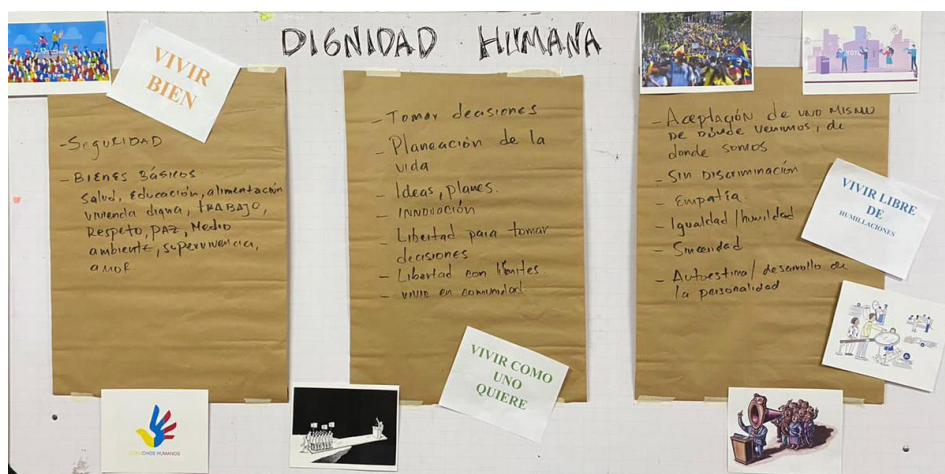 DIGNIDAD HUMANA
VIVIR
BIEN
- SEGURIDAD
- BIENES BÁSICOS
Salud, Educación, alimentación
vivienda digna, TRABAJO,
Respeto, paz, Medio
ambiente, supervivencia,
amor
- Tomar decisiones
- Planeación de la
vida
- Ideas, planes.
- INNOVACIÓN
- Libertad para tomar
decisiones
- Libertad con límites.
- vivir en comunidad.
VIVIR COMO
UNO
QUIERE
- Aceptación de uno mismo
De dónde venimos, de
donde somos
- Sin Discriminación
- Empatía.
- Igualdad/humildad
- Sinceridad
- Autoestima/desarrollo de
la personalidad
VIVIR LIBRE
DE
HUMILLACIONES
HUMANOS